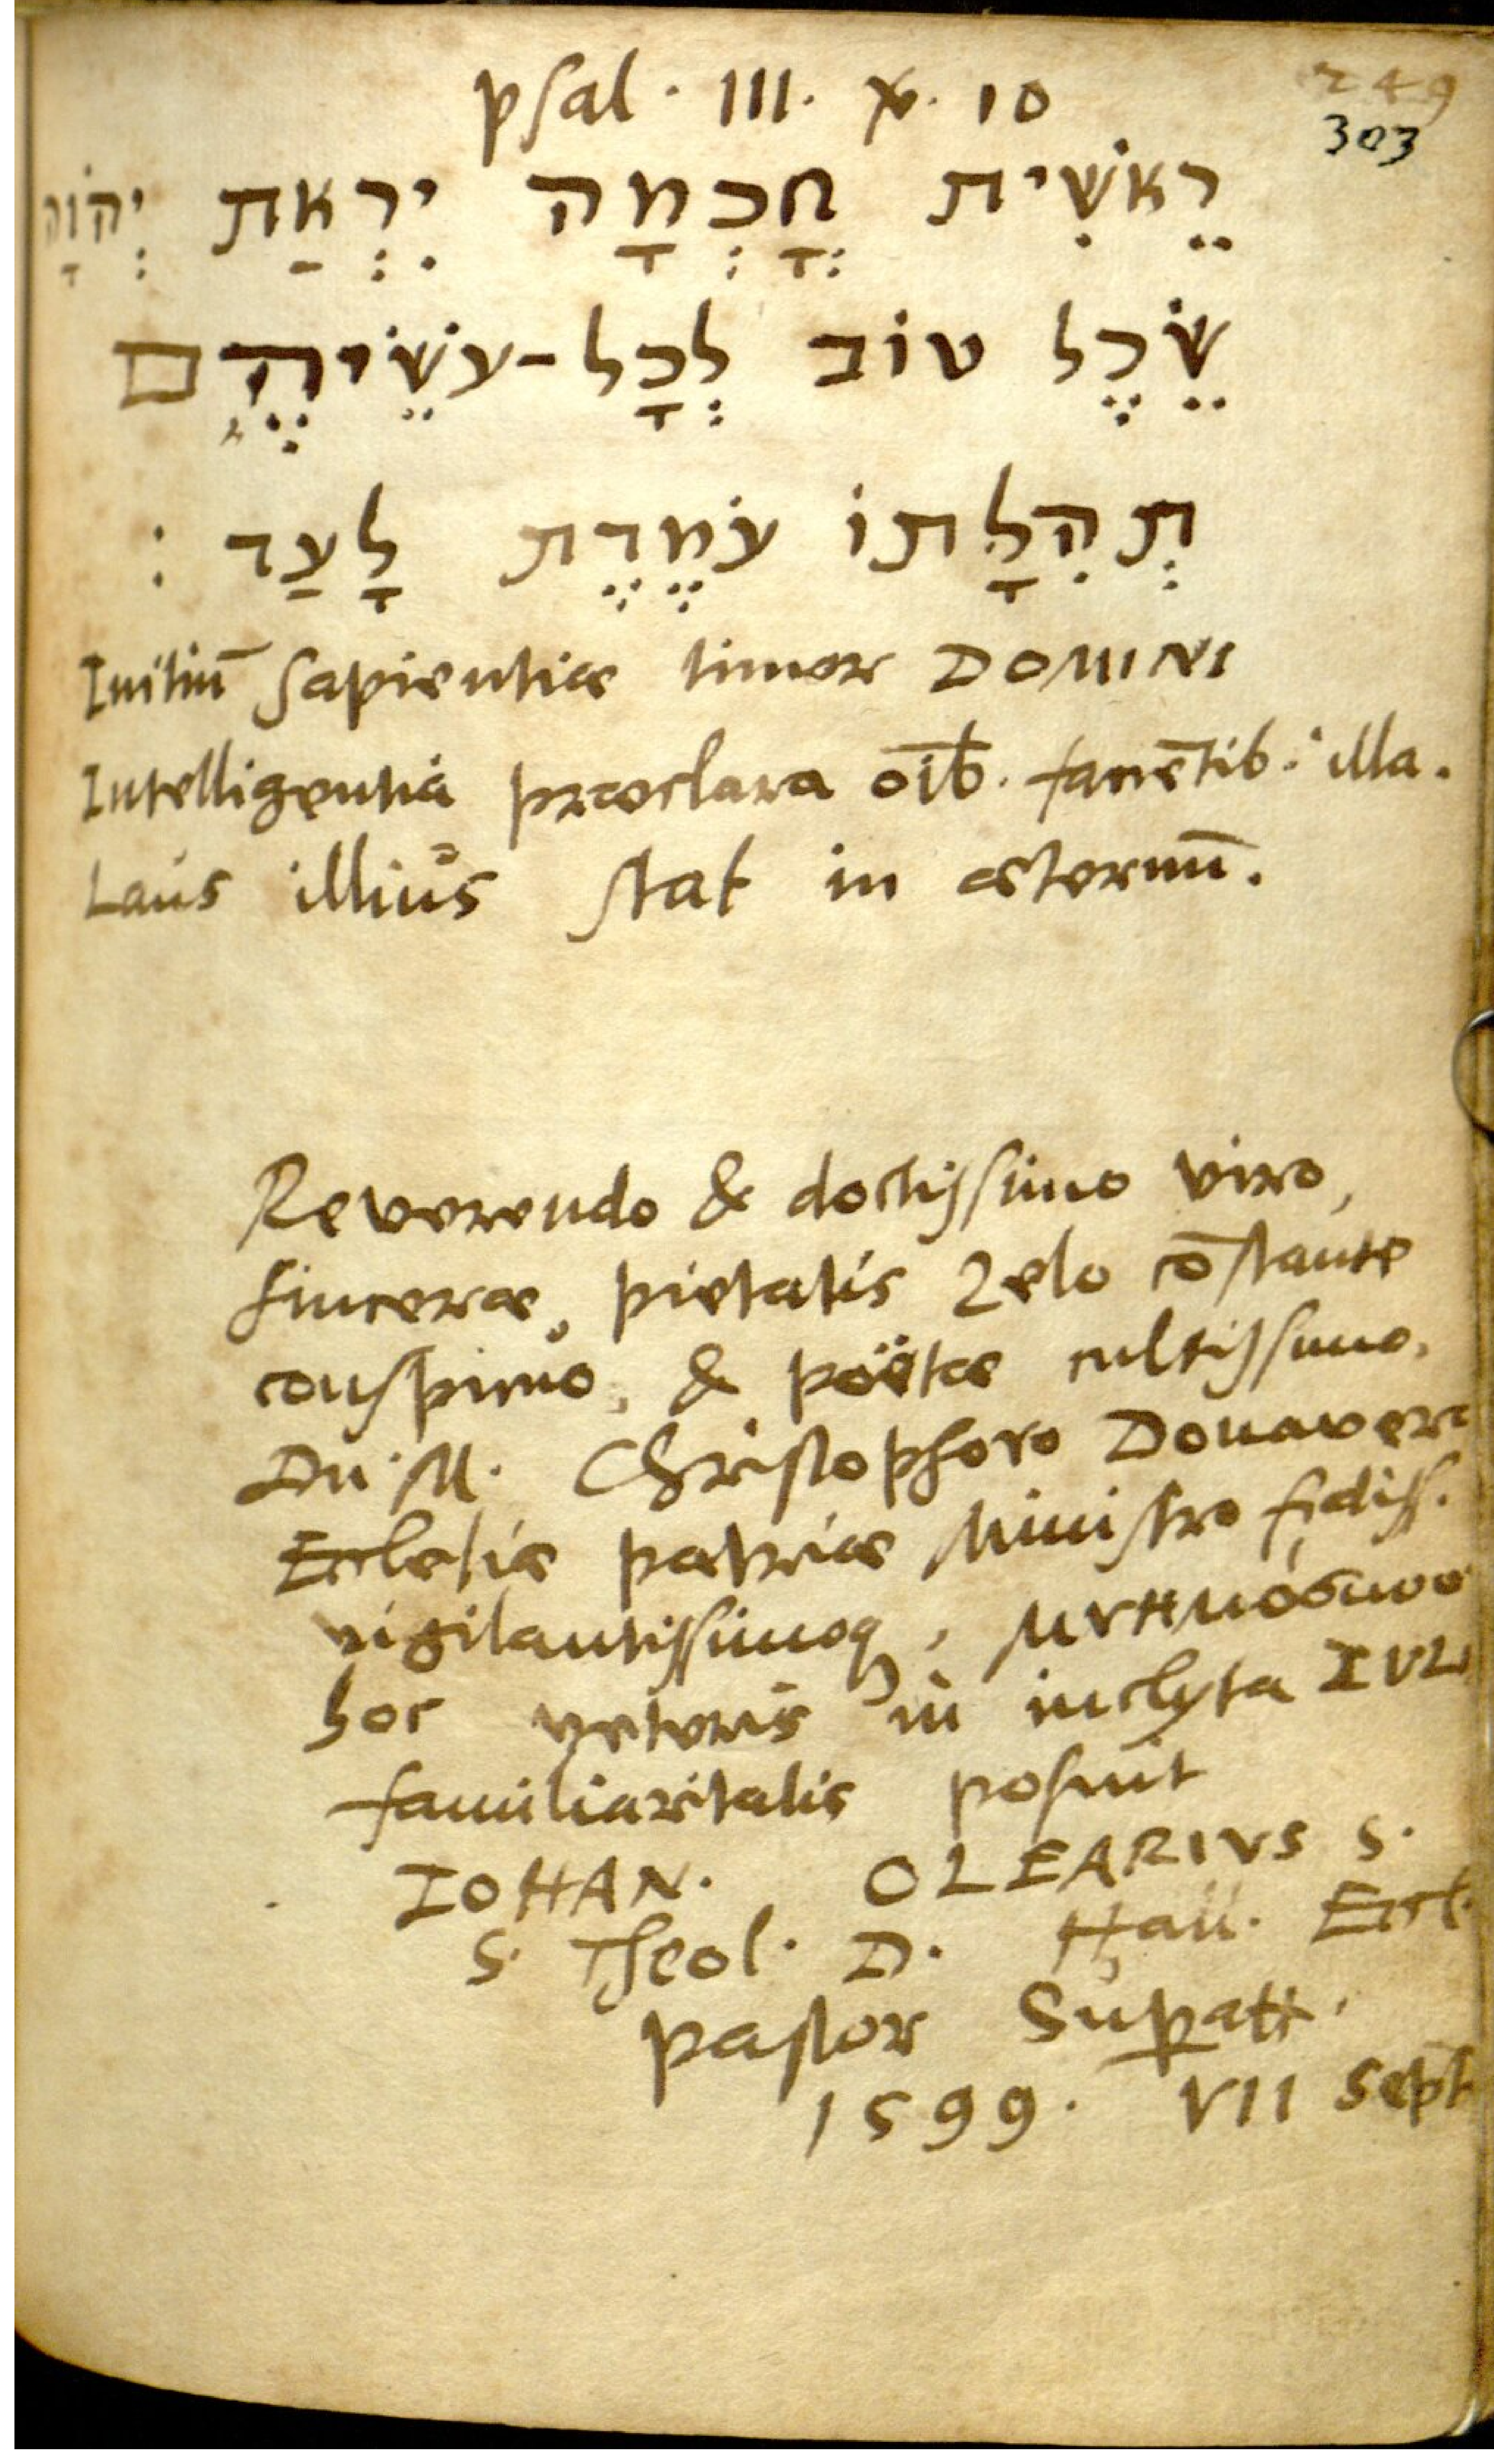 psal. III. ℣. 10
249
303
רֵאשִׁית חֳָכְמָה יִרְאַת יְהוָֹה
שֵׂכֶל טוֹב לְכָל-עֹשֵׂיהֶם
תְּהִלָּתוֹ עֹמֶדֶת לָעַד :
Initiū sapientiæ timor DOMINI
Intelligentia præclara oīb. faciētib. illa.
Laus illius stat in æternū.
Reverendo & doctissimo viro,
sinceræ pietatis zelo cōstante
conspicuo, & poëtæ cultissimo,
Dn. M. Christophoro Donavero
Ecclesiæ patriæ Ministro fidiss.
vigilantissimoq, μνημόσυνον
hoc veteris in inclyta IVL
familiaritatis posuit
IOHAN. OLEARIVS S.
S. Theol. D. Hall. Eccl.
pastor Superatt.
1599. VII Sept